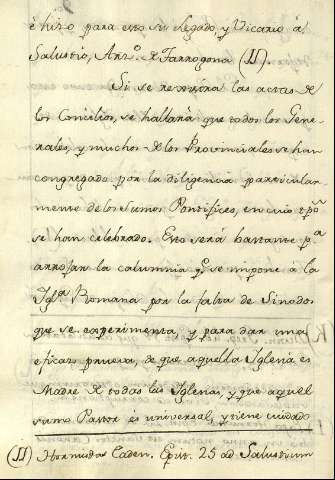 è hizo para esto su Legado, y Vicario â
Salustio, Arzo. de Tarragona (II).
Si se reconocen las actas de
los Concilios, se hallarà que todos los Gene-
rales, y muchos de los Provinciales se han
congregado por la diligencia particular-
mente de los Sumos Pontifices, en cuio tpõ
se han celebrado. Esto serà bastante pa
arrojar la calumnia q̃ se impone â la
Iglã Romana por la falta de Sinodos
que se experimenta, y para dar una
eficaz prueva, de que aquella Iglesia es
Madre de todas las Iglesias, y que aquel
sumo Pastor es universal, y tiene cuidado
(II) Hormisdas Eadem. Epist. 25 ad Salustium